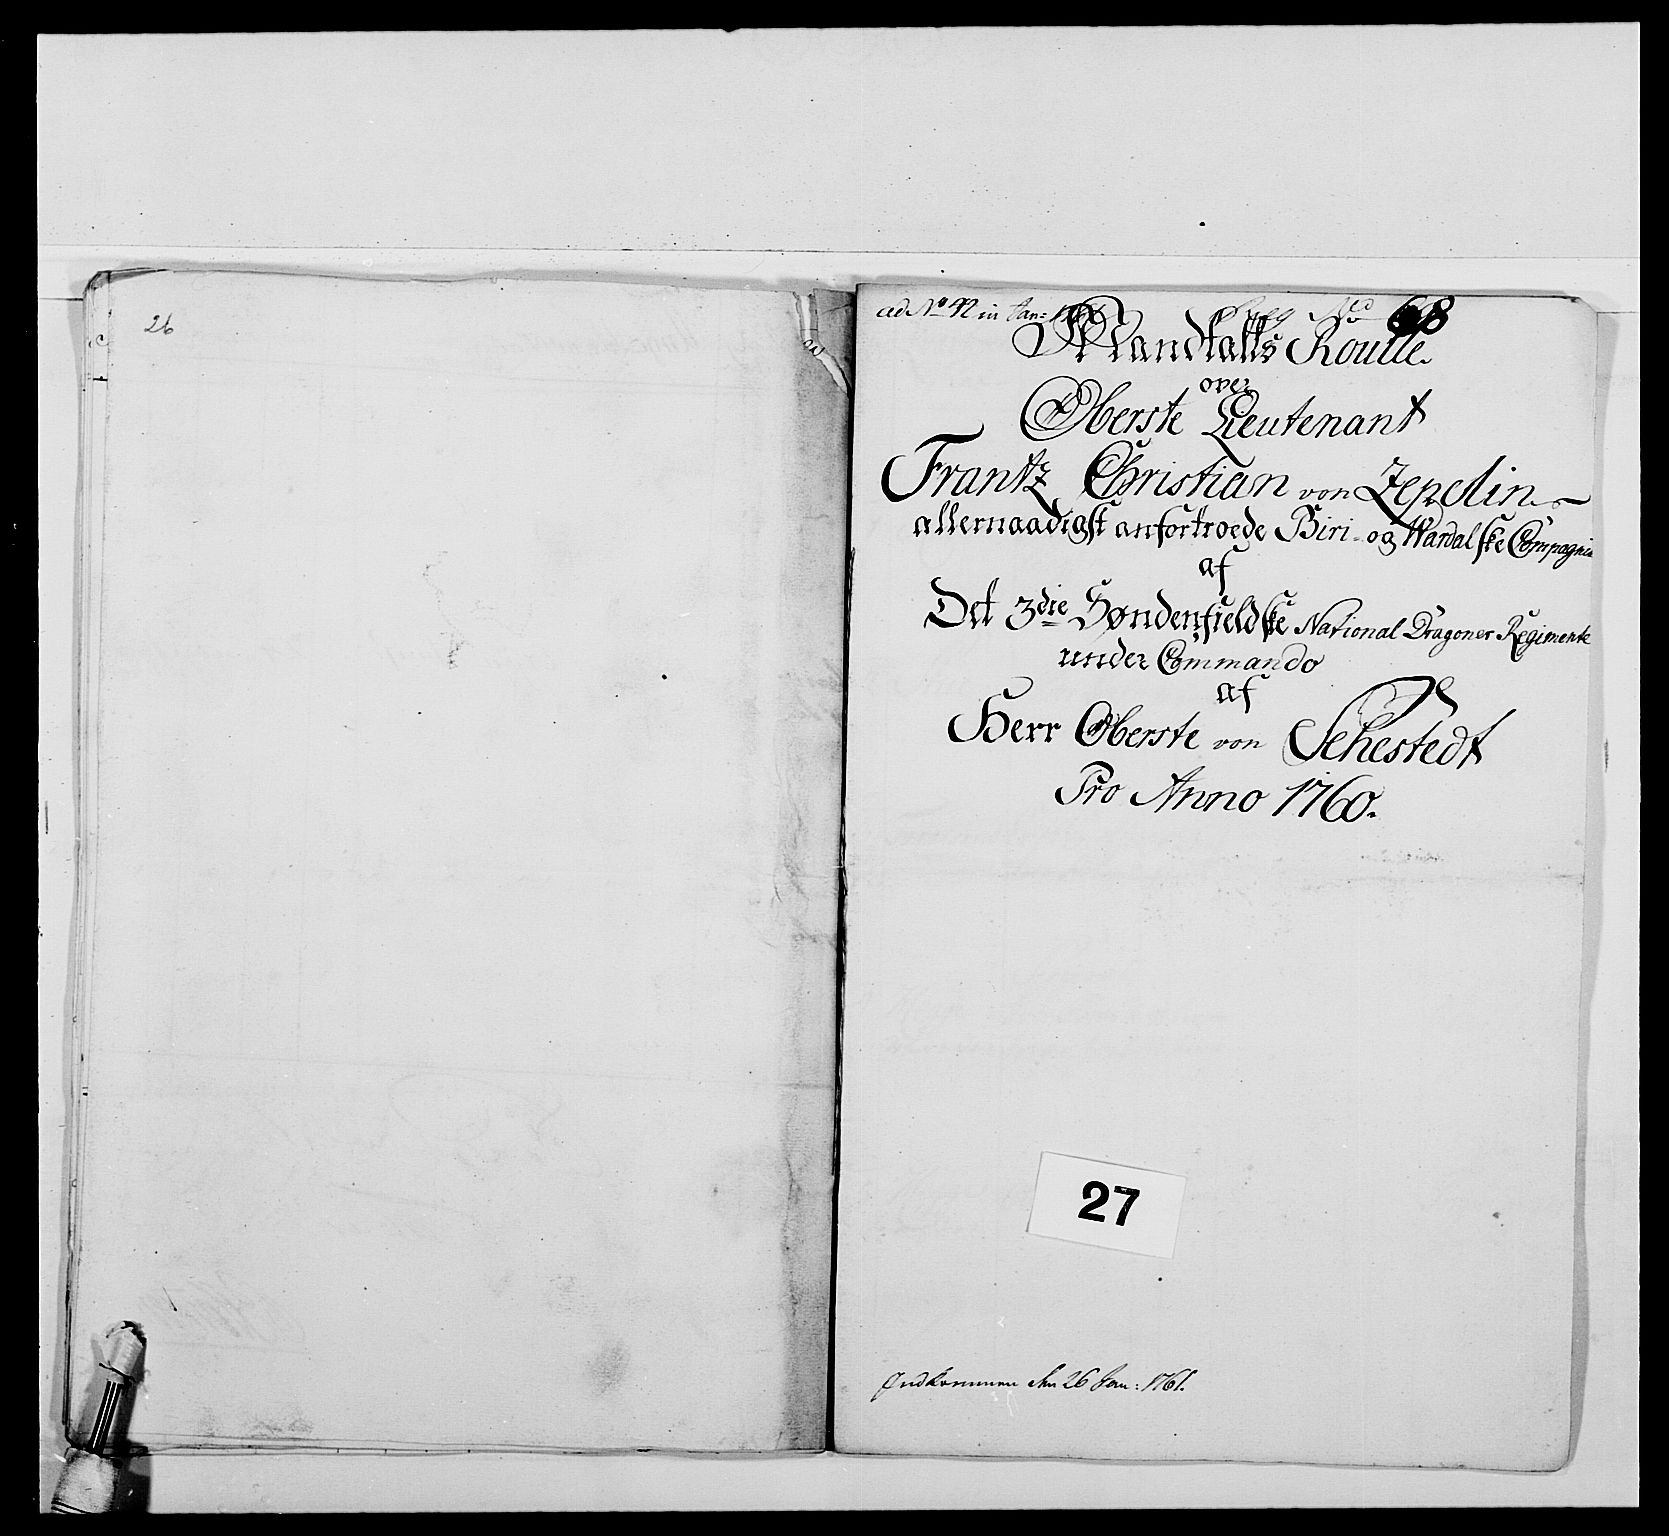 26
ad No 42 in Jan: 1761
No 68
Mandtalls Roulle.
over
Oberste Lieutenant
Frantz Christian von Zepelin
allernaadigst anfortroede Biri- og Wardalske Compagnie
af
Det 3die Søndenfieldske National Dragoner Regimente
under Commando
af
Herr Oberste von Sehestedt
Pro Anno 1760.
27
Indkommen den 26 Jan: 1761.